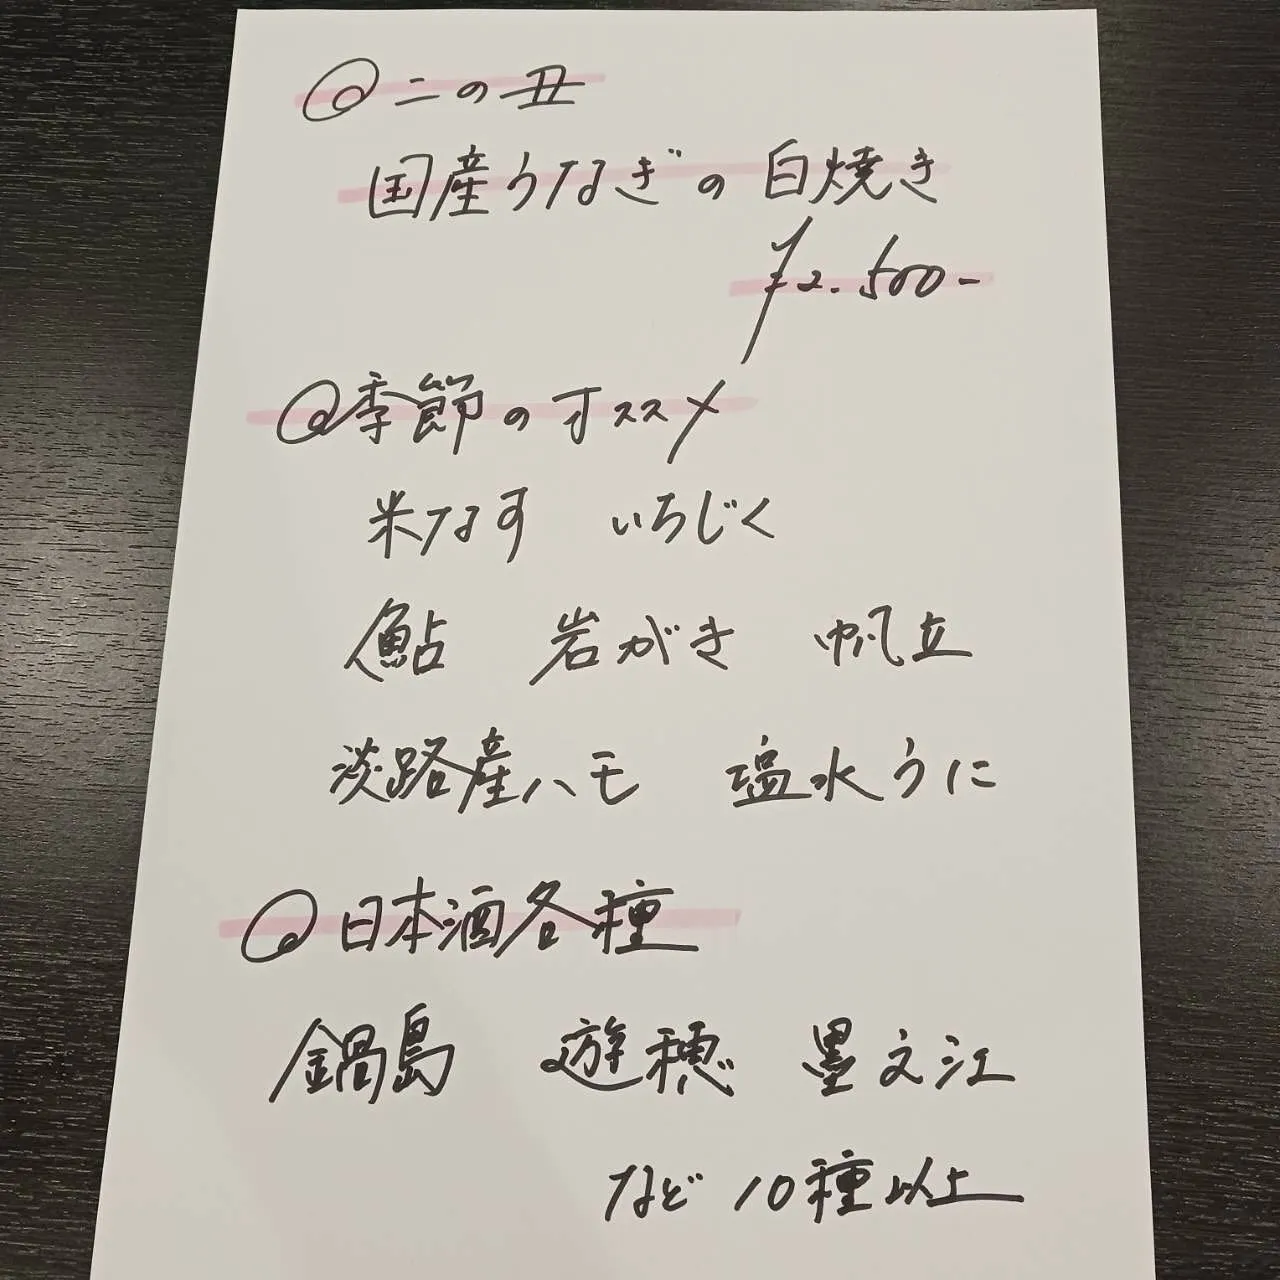 ◎二の丑
国産うなぎの白焼き
¥2.500-
◎季節のオススメ
米なす いちじく
鮎 岩がき 帆立
淡路産ハモ 塩水うに
◎日本酒各種
鍋島 遊穂 墨廼江
など 10種以上